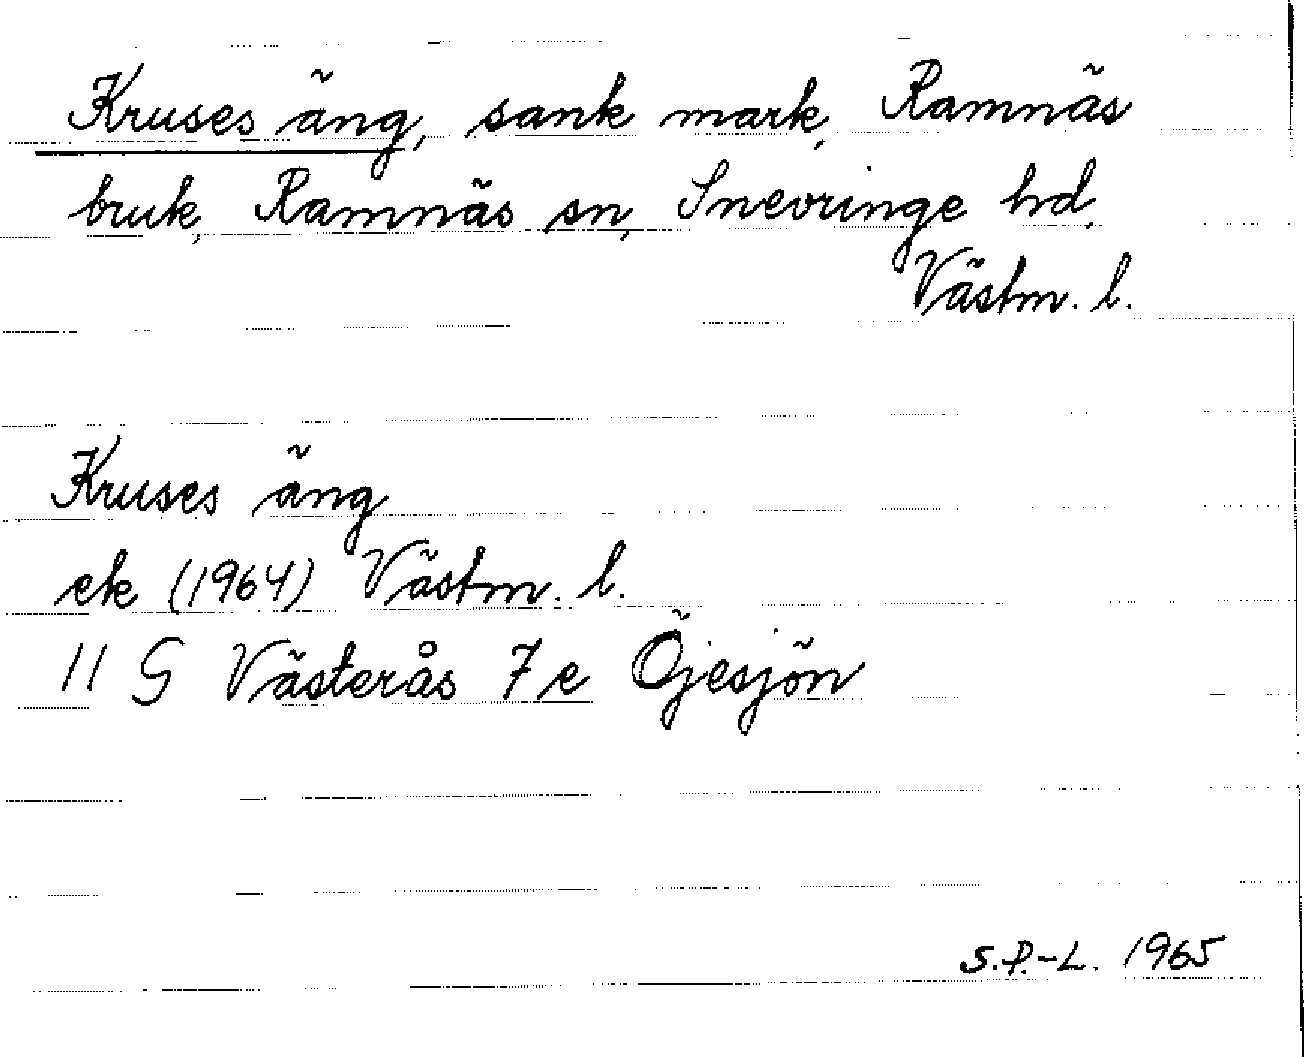 Kruses äng, sank mark, Ramnäs
bruk, Ramnäs sn, Snevringe hd,
Västm. l.
Kruses äng
ek (1964) Västm. l.
11 G Västerås 7 e Öjesjön
S.P.-L. 1965